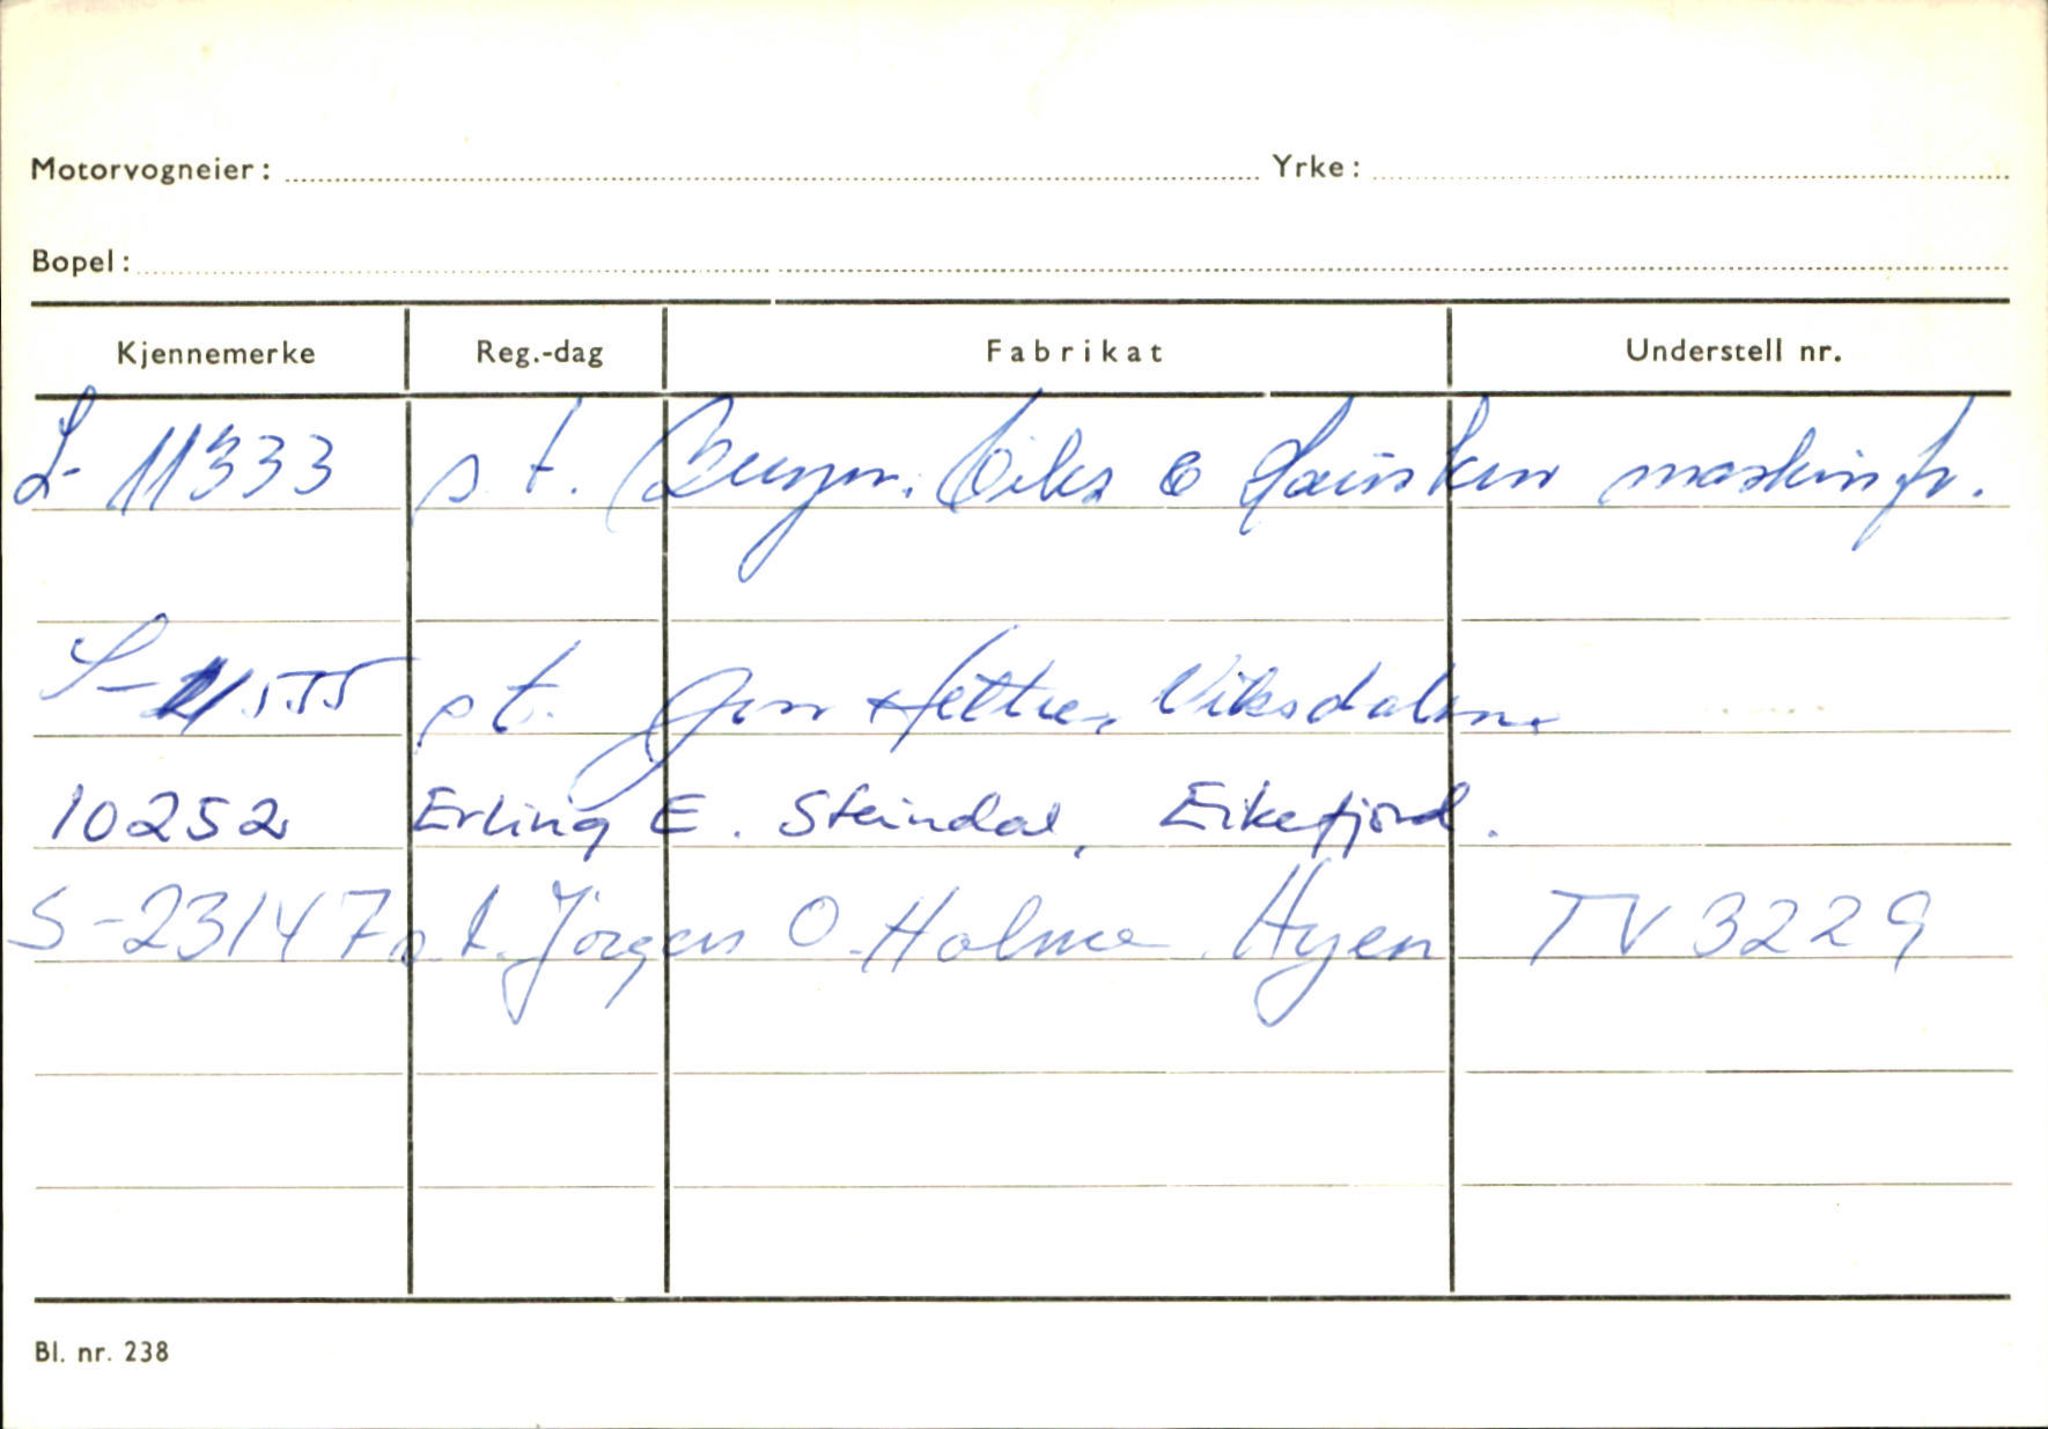 Motorvogneier: Yrke:
Bopel:
Kjennemerke Reg.-dag Fabrikat Understell nr.
S-11333 s.t. & maskinfr.
S- 555 s.t. Hetle, Viksdalen.
10252 Erling E. Steindal, Eikefjord.
S-23147 s.t. Jörgen O. Holme Hyen TV 3229
Bl. nr. 238